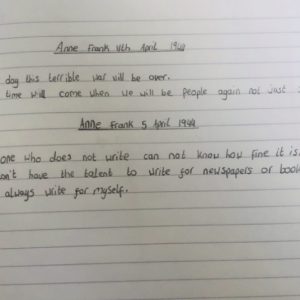 Anne Frank 11th April 1944
day this terrible war will be over.
time will come when we will be people again not just
Anne Frank 5 April 1944
one who does not write can not know how fine it is.
on't have the talent to write for newspapers or book
always write for myself.